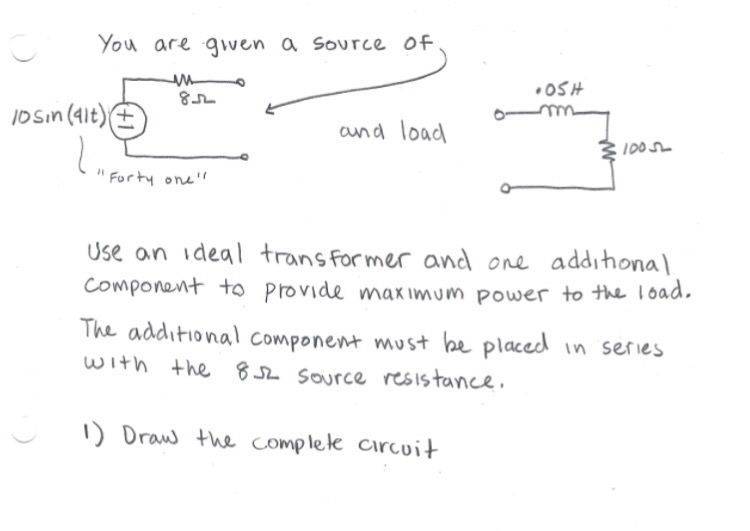 You are given a source of
8Ω
10 sin(41t)
"Forty one"
and load
.05H
100Ω
Use an ideal transformer and one additional
component to provide maximum power to the load.
The additional component must be placed in series
with the 8Ω source resistance.
1) Draw the complete circuit